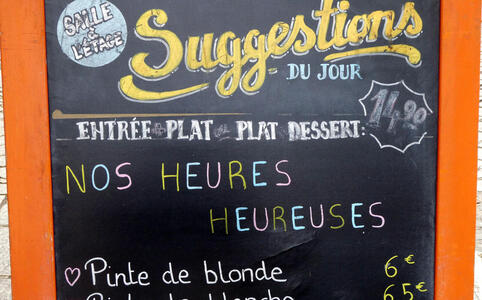 SALLE
&
L'ÉTAGE
Suggestions
DU JOUR
ENTRÉE + PLAT ou PLAT DESSERT: 14,90
NOS HEURES
HEUREUSES
♡ Pinte de blonde 6€
Pinte de blanche 6,5€